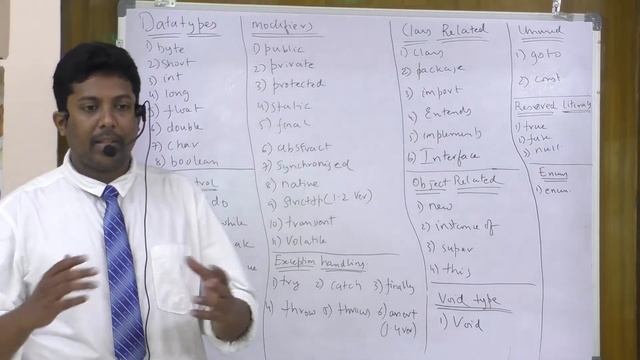 Datatypes
1) byte
2) short
3) int
4) long
5) float
6) double
7) char
8) boolean
do
while
modifiers
1) public
2) private
3) protected
4) static
5) final
6) abstract
7) Synchronised
8) native
9) strictfp (1.2 Ver)
10) transient
11) Volatile
Exception handling
1) try 2) catch 3) finally
4) throw 5) throws 6) assert
(1.4 ver)
Class Related
1) Class
2) package
3) import
4) Extends
5) implements
6) Interface
Object Related
1) new
2) instance of
3) super
4) this
Void type
1) Void
Unused
1) goto
2) const
Reserved literals
1) true
2) false
3) null
Enum
1) enum